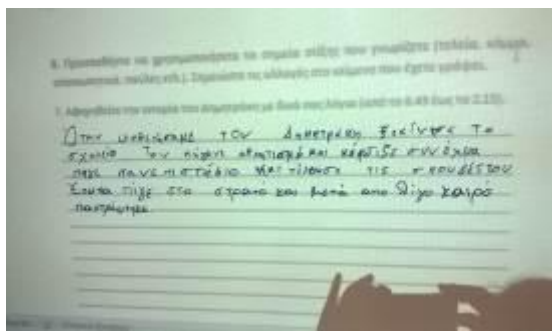 6. Προσπαθήστε να χρησιμοποιήσετε τα σημεία στίξης που γνωρίζετε (τελεία, κόμμα,
αποσιωπητικά, παύλες κτλ.). Σημειώστε τις αλλαγές στο κείμενο που έχετε γράψει.
7. Αφηγηθείτε την ιστορία του Δημητράκη με δικά σας λόγια (από το 0.49 έως το 2.15).
Όταν τον Δημητράκη ξεκίνησε το
σχολείο Τον και κέρδιζε συνέχεια
πήγε πανεπιστήμιο και τις σπουδές του
Έπειτα πήγε στο στρατό και μετά από λίγο καιρό
παντρεύτηκε